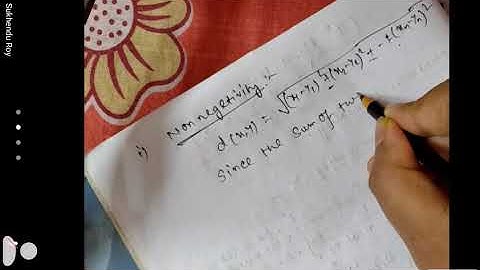 Sukhendu Roy
i) Non negetivity :-
d(x,y) = √(x₁-y₁)²+(x₂-y₂)²+--+(xₙ-yₙ)²
Since the sum of tw